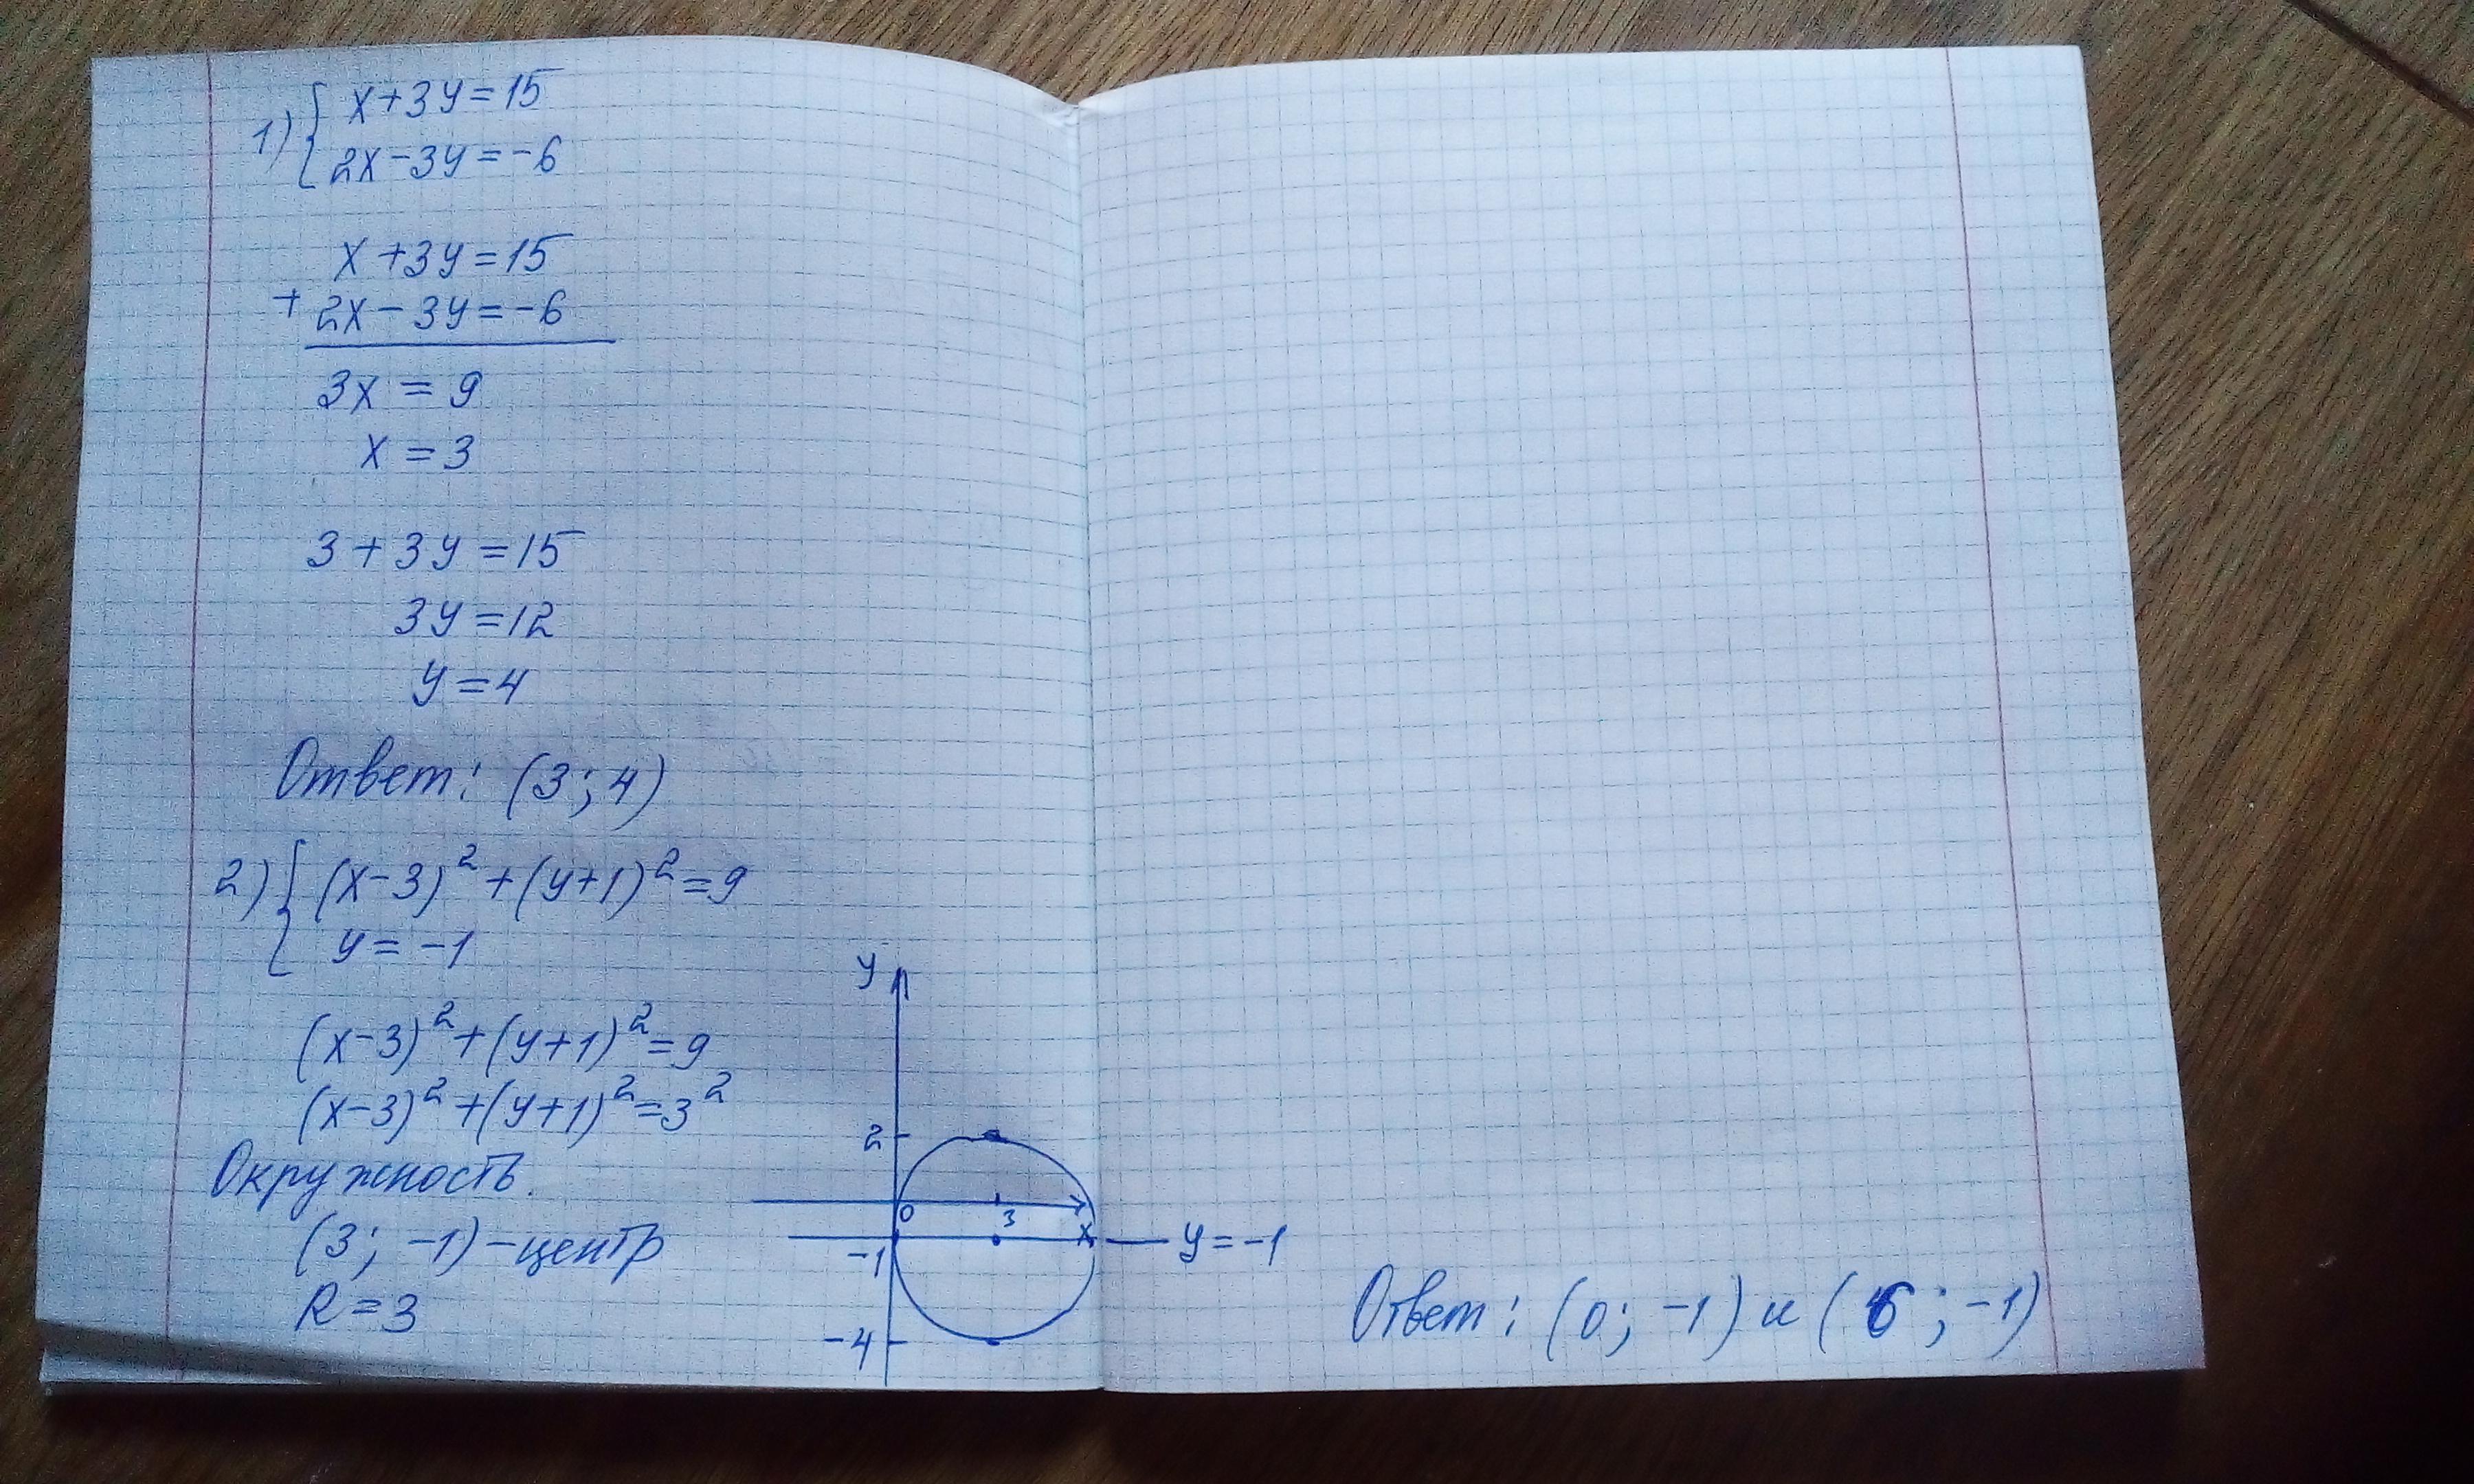 1) { x+3y=15
2x-3y=-6
x+3y=15
+ 2x-3y=-6
3x = 9
x = 3
3+3y=15
3y=12
y=4
Ответ: (3; 4)
2) { (x-3)²+(y+1)²=9
y=-1
(x-3)²+(y+1)²=9
(x-3)²+(y+1)²=3²
Окружность.
(3; -1) - центр
R=3
y
2
0 3 x
-1
y=-1
-4
Ответ: (0; -1) и (6; -1)